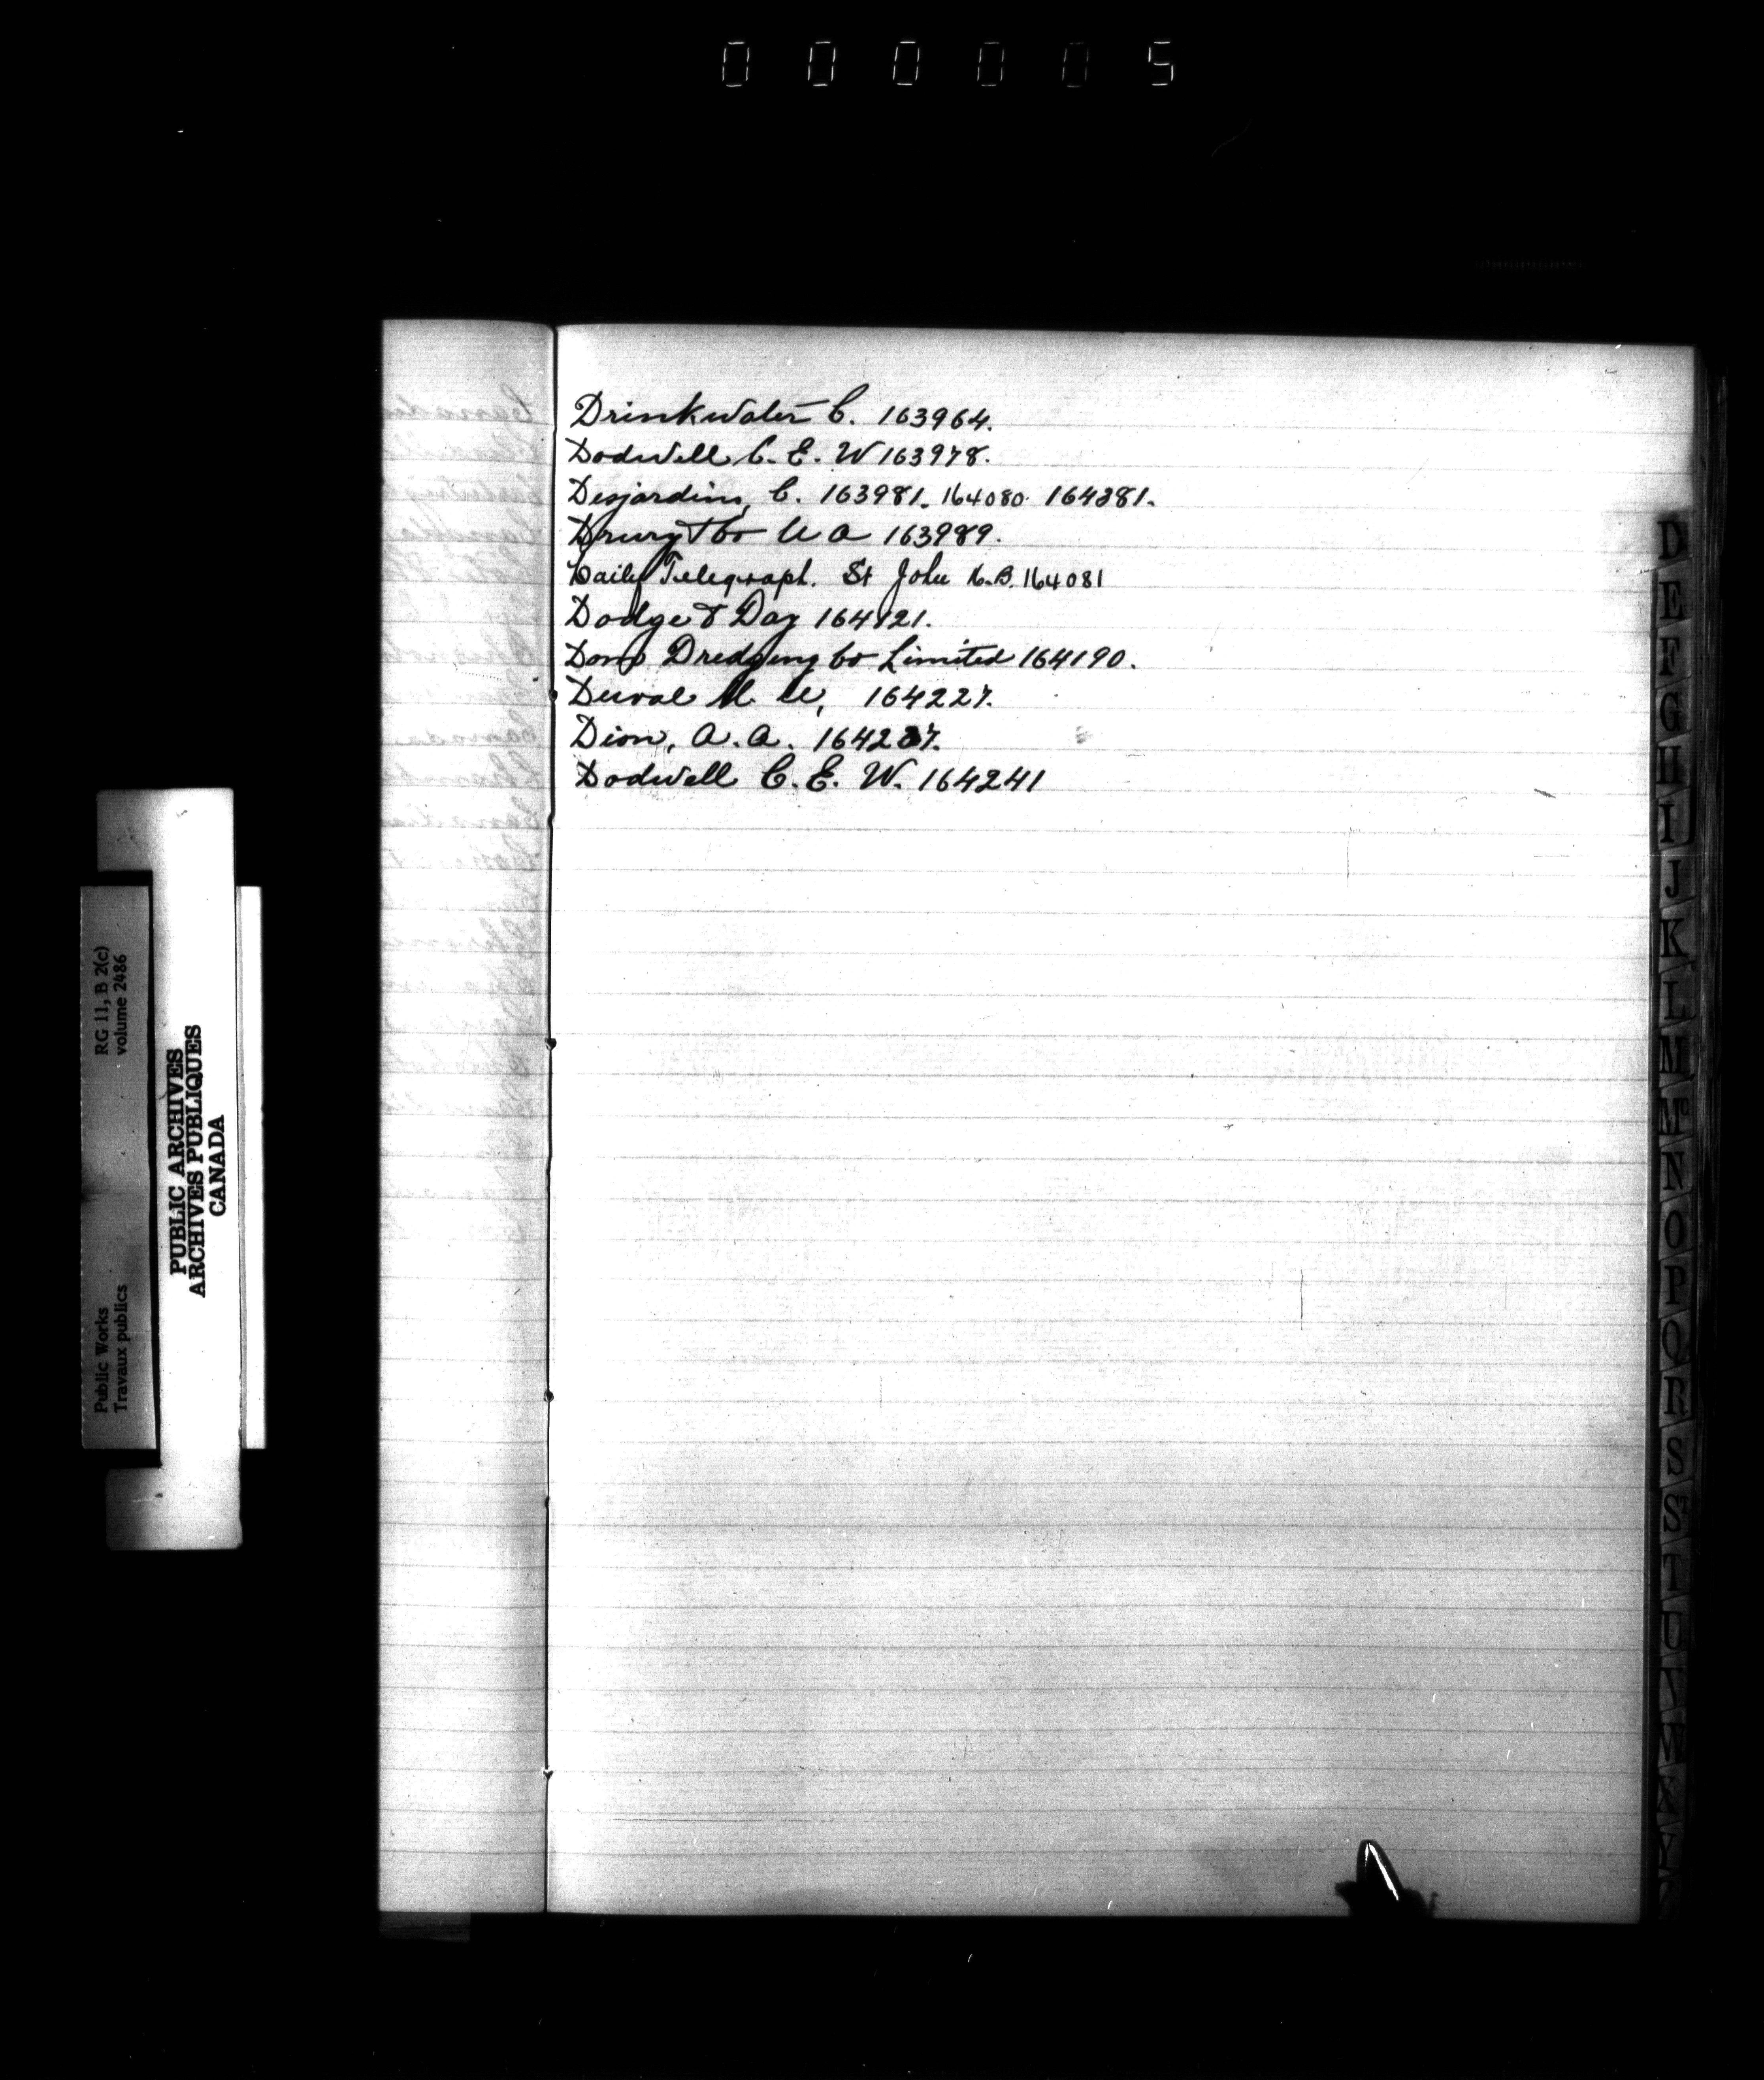 000005
Drinkwater C. 163964.
Dodwell C. E. W 163978.
Desjardins, C. 163981. 164080. 164381.
Drury & Co 163989.
Daily Telegraph. St John N.B. 164081
Dodge & Day 164121.
Dom Dredging Co Limited 164190.
Duval 164227.
Dion, A. A. 164237.
Dodwell C. E. W. 164241
D
E
F
G
H
I
J
K
L
M
Mc
N
O
P
Q
R
S
St
T
U
V
W
X
Y
RG 11, B 2(c)
volume 2486
Public Works
Travaux publics
PUBLIC ARCHIVES
ARCHIVES PUBLIQUES
CANADA